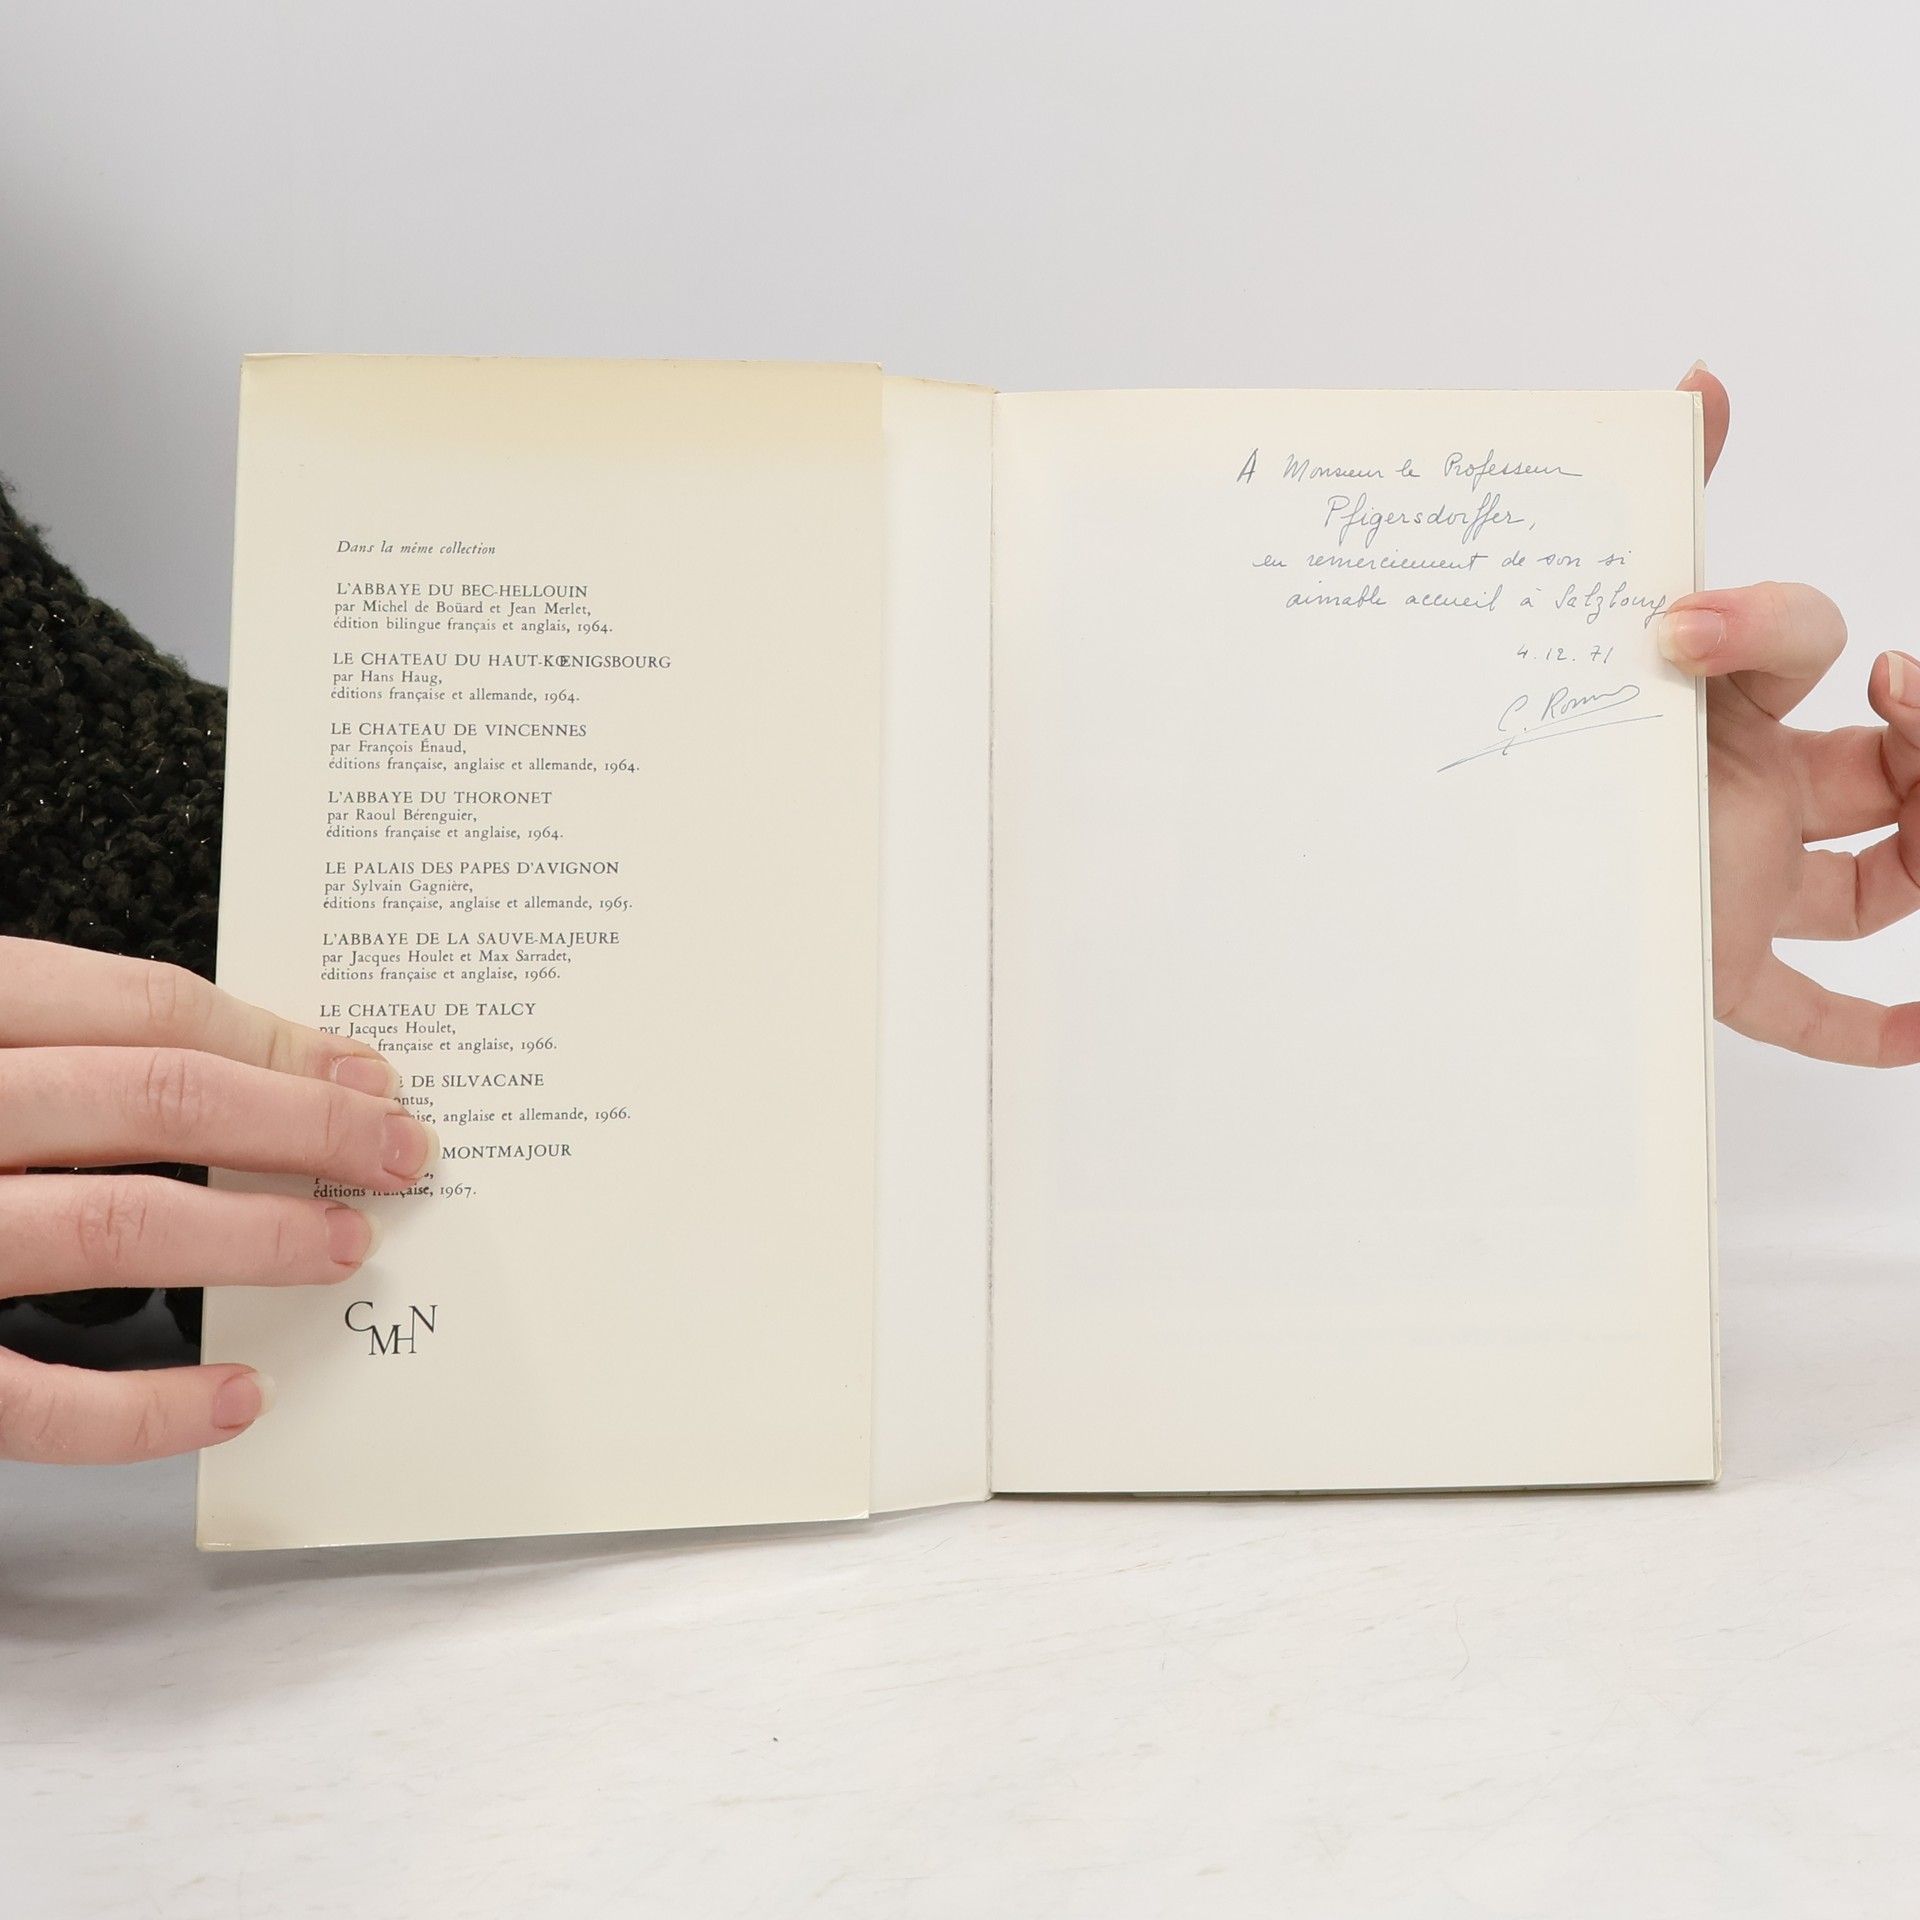 Dans la même collection
L'ABBAYE DU BEC-HELLOUIN
par Michel de Boüard et Jean Merlet,
édition bilingue français et anglais, 1964.
LE CHATEAU DU HAUT-KŒNIGSBOURG
par Hans Haug,
éditions française et allemande, 1964.
LE CHATEAU DE VINCENNES
par François Énaud,
éditions française, anglaise et allemande, 1964.
L'ABBAYE DU THORONET
par Raoul Bérenguier,
éditions française et anglaise, 1964.
LE PALAIS DES PAPES D'AVIGNON
par Sylvain Gagnière,
éditions française, anglaise et allemande, 1965.
L'ABBAYE DE LA SAUVE-MAJEURE
par Jacques Houlet et Max Sarradet,
éditions française et anglaise, 1966.
LE CHATEAU DE TALCY
par Jacques Houlet,
française et anglaise, 1966.
DE SILVACANE
anglaise et allemande, 1966.
MONTMAJOUR
éditions française, 1967.
CMHN
A Monsieur le Professeur
Pfigersdorffer,
en remerciement de son si
aimable accueil à Salzbourg
4.12.71